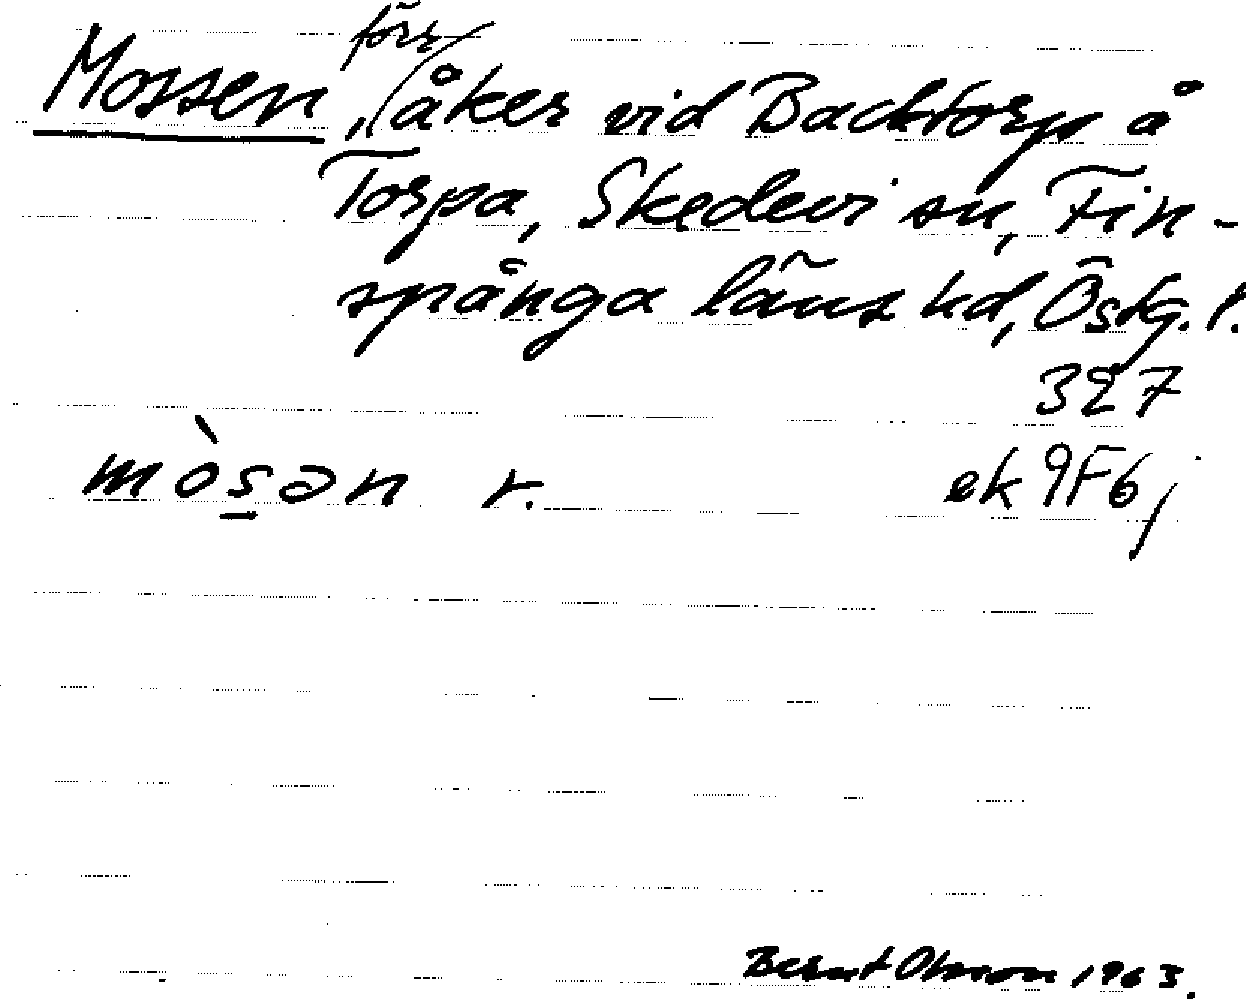 förr
Mossen, åker vid Backtorp å
Torpa, Skedevi sn, Fin-
spånga läns hd, Östg. l.
327
mòsan r. ek 9F6j
Bernt Olsson 1963.